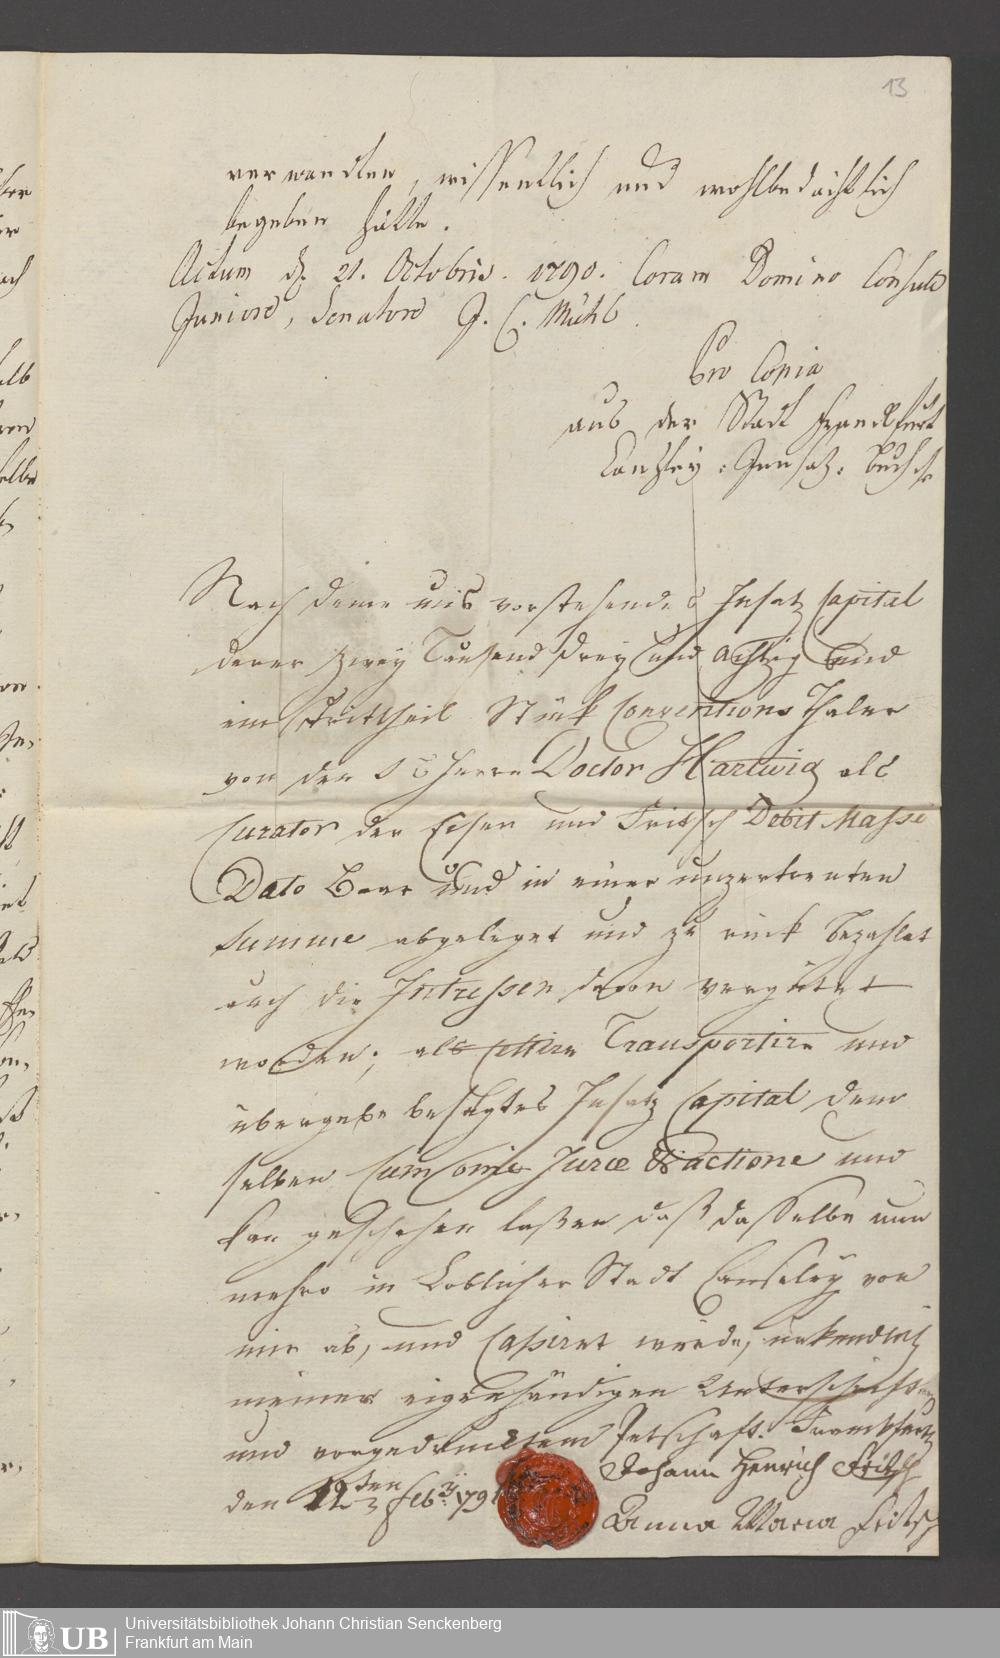 13
verwandten, wissentlich und wohlbedächtlich
begeben hätte.
Actum d. 21. Octobris. 1790. Coram Domino Consule
Juniore, Senatore J. C. Mühl.
Pro Copia
aus der Stadt Franckfurt
Canzley: Innsatz: Buch
Nach deme mir vorstehendes Insatz Capital
derer Zwey Tausend drey und Achtzig und
ein Drittheil Stück Conventions Thaler
von den Herrn Doctor Hartwig als
Curator der Eisen und Fritsch Debit Masse
Dato Baar und in einer unzertrenten
Summe abgeleget und zu rück bezahlet
auch die Intressen davon vergütet
worden; als cettire Transportire und
übergebe besagtes Insatz Capital dem
selben Cum omie Jurae & actione und
kan geschehen laßen daß dasselbe nun
mehro in Löblicher Stadt Canseley von
mir ab, und Cassiret werde, urkundlich
meiner eigenhändigen Unterschrift
und vorgedrucktem Petschaft. Franckfurth
den 12ten Feb 179 Johann Henrich Fritsch
Anna Maria Fritsch
UB
Universitätsbibliothek Johann Christian Senckenberg
Frankfurt am Main